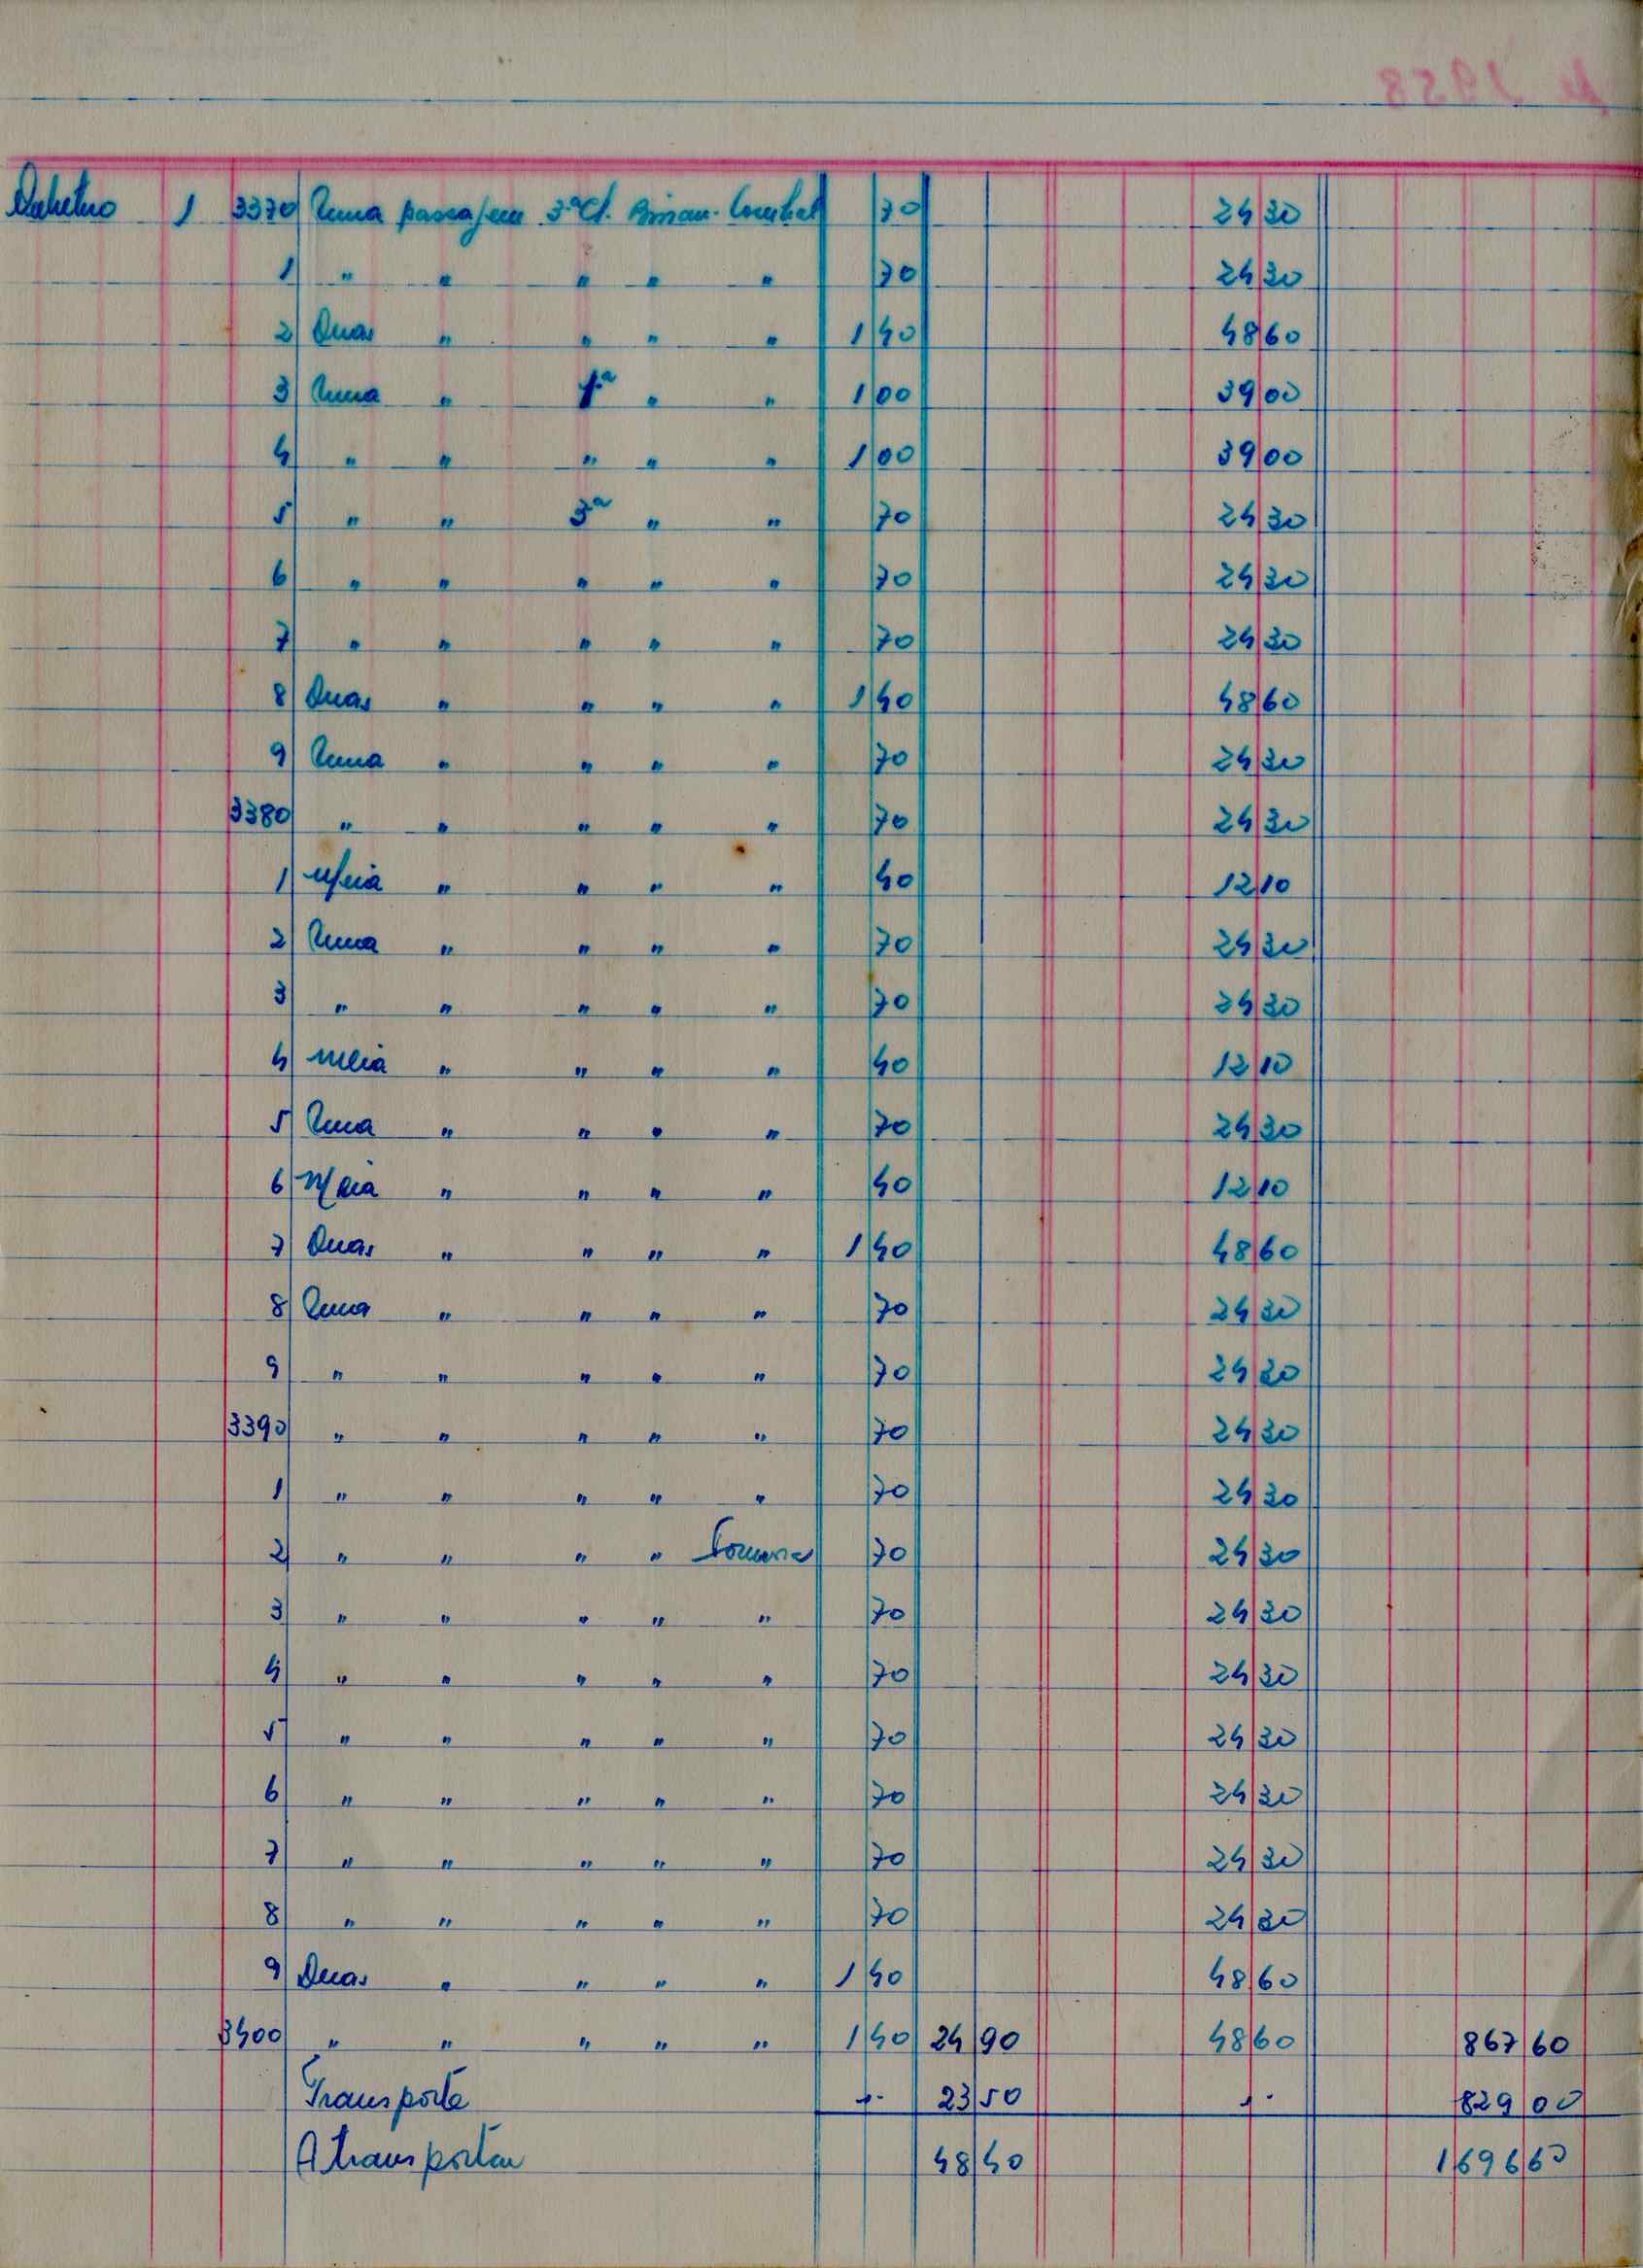 Outubro 1 3370 Uma passagem 3ª Cl. Bissau - 70 24 30
1 " " " " " 70 24 30
2 Duas " " " " 1 40 48 60
3 Uma " 1ª " " 1 00 39 00
4 " " " " " 1 00 39 00
5 " " 3ª " " 70 24 30
6 " " " " " 70 24 30
7 " " " " " 70 24 30
8 Duas " " " " 1 40 48 60
9 Uma " " " " 70 24 30
3380 " " " " " 70 24 30
1 Meia " " " " 40 12 10
2 Uma " " " " 70 24 30
3 " " " " " 70 24 30
4 Meia " " " " 40 12 10
5 Uma " " " " 70 24 30
6 Meia " " " " 40 12 10
7 Duas " " " " 1 40 48 60
8 Uma " " " " 70 24 30
9 " " " " " 70 24 30
3390 " " " " " 70 24 30
1 " " " " " 70 24 30
2 " " " " 70 24 30
3 " " " " " 70 24 30
4 " " " " " 70 24 30
5 " " " " " 70 24 30
6 " " " " " 70 24 30
7 " " " " " 70 24 30
8 " " " " " 70 24 30
9 Duas " " " " 1 40 48 60
3400 " " " " " 1 40 24 90 48 60 867 60
Transporte 23 50 829 00
A transportar 48 40 1 696 60